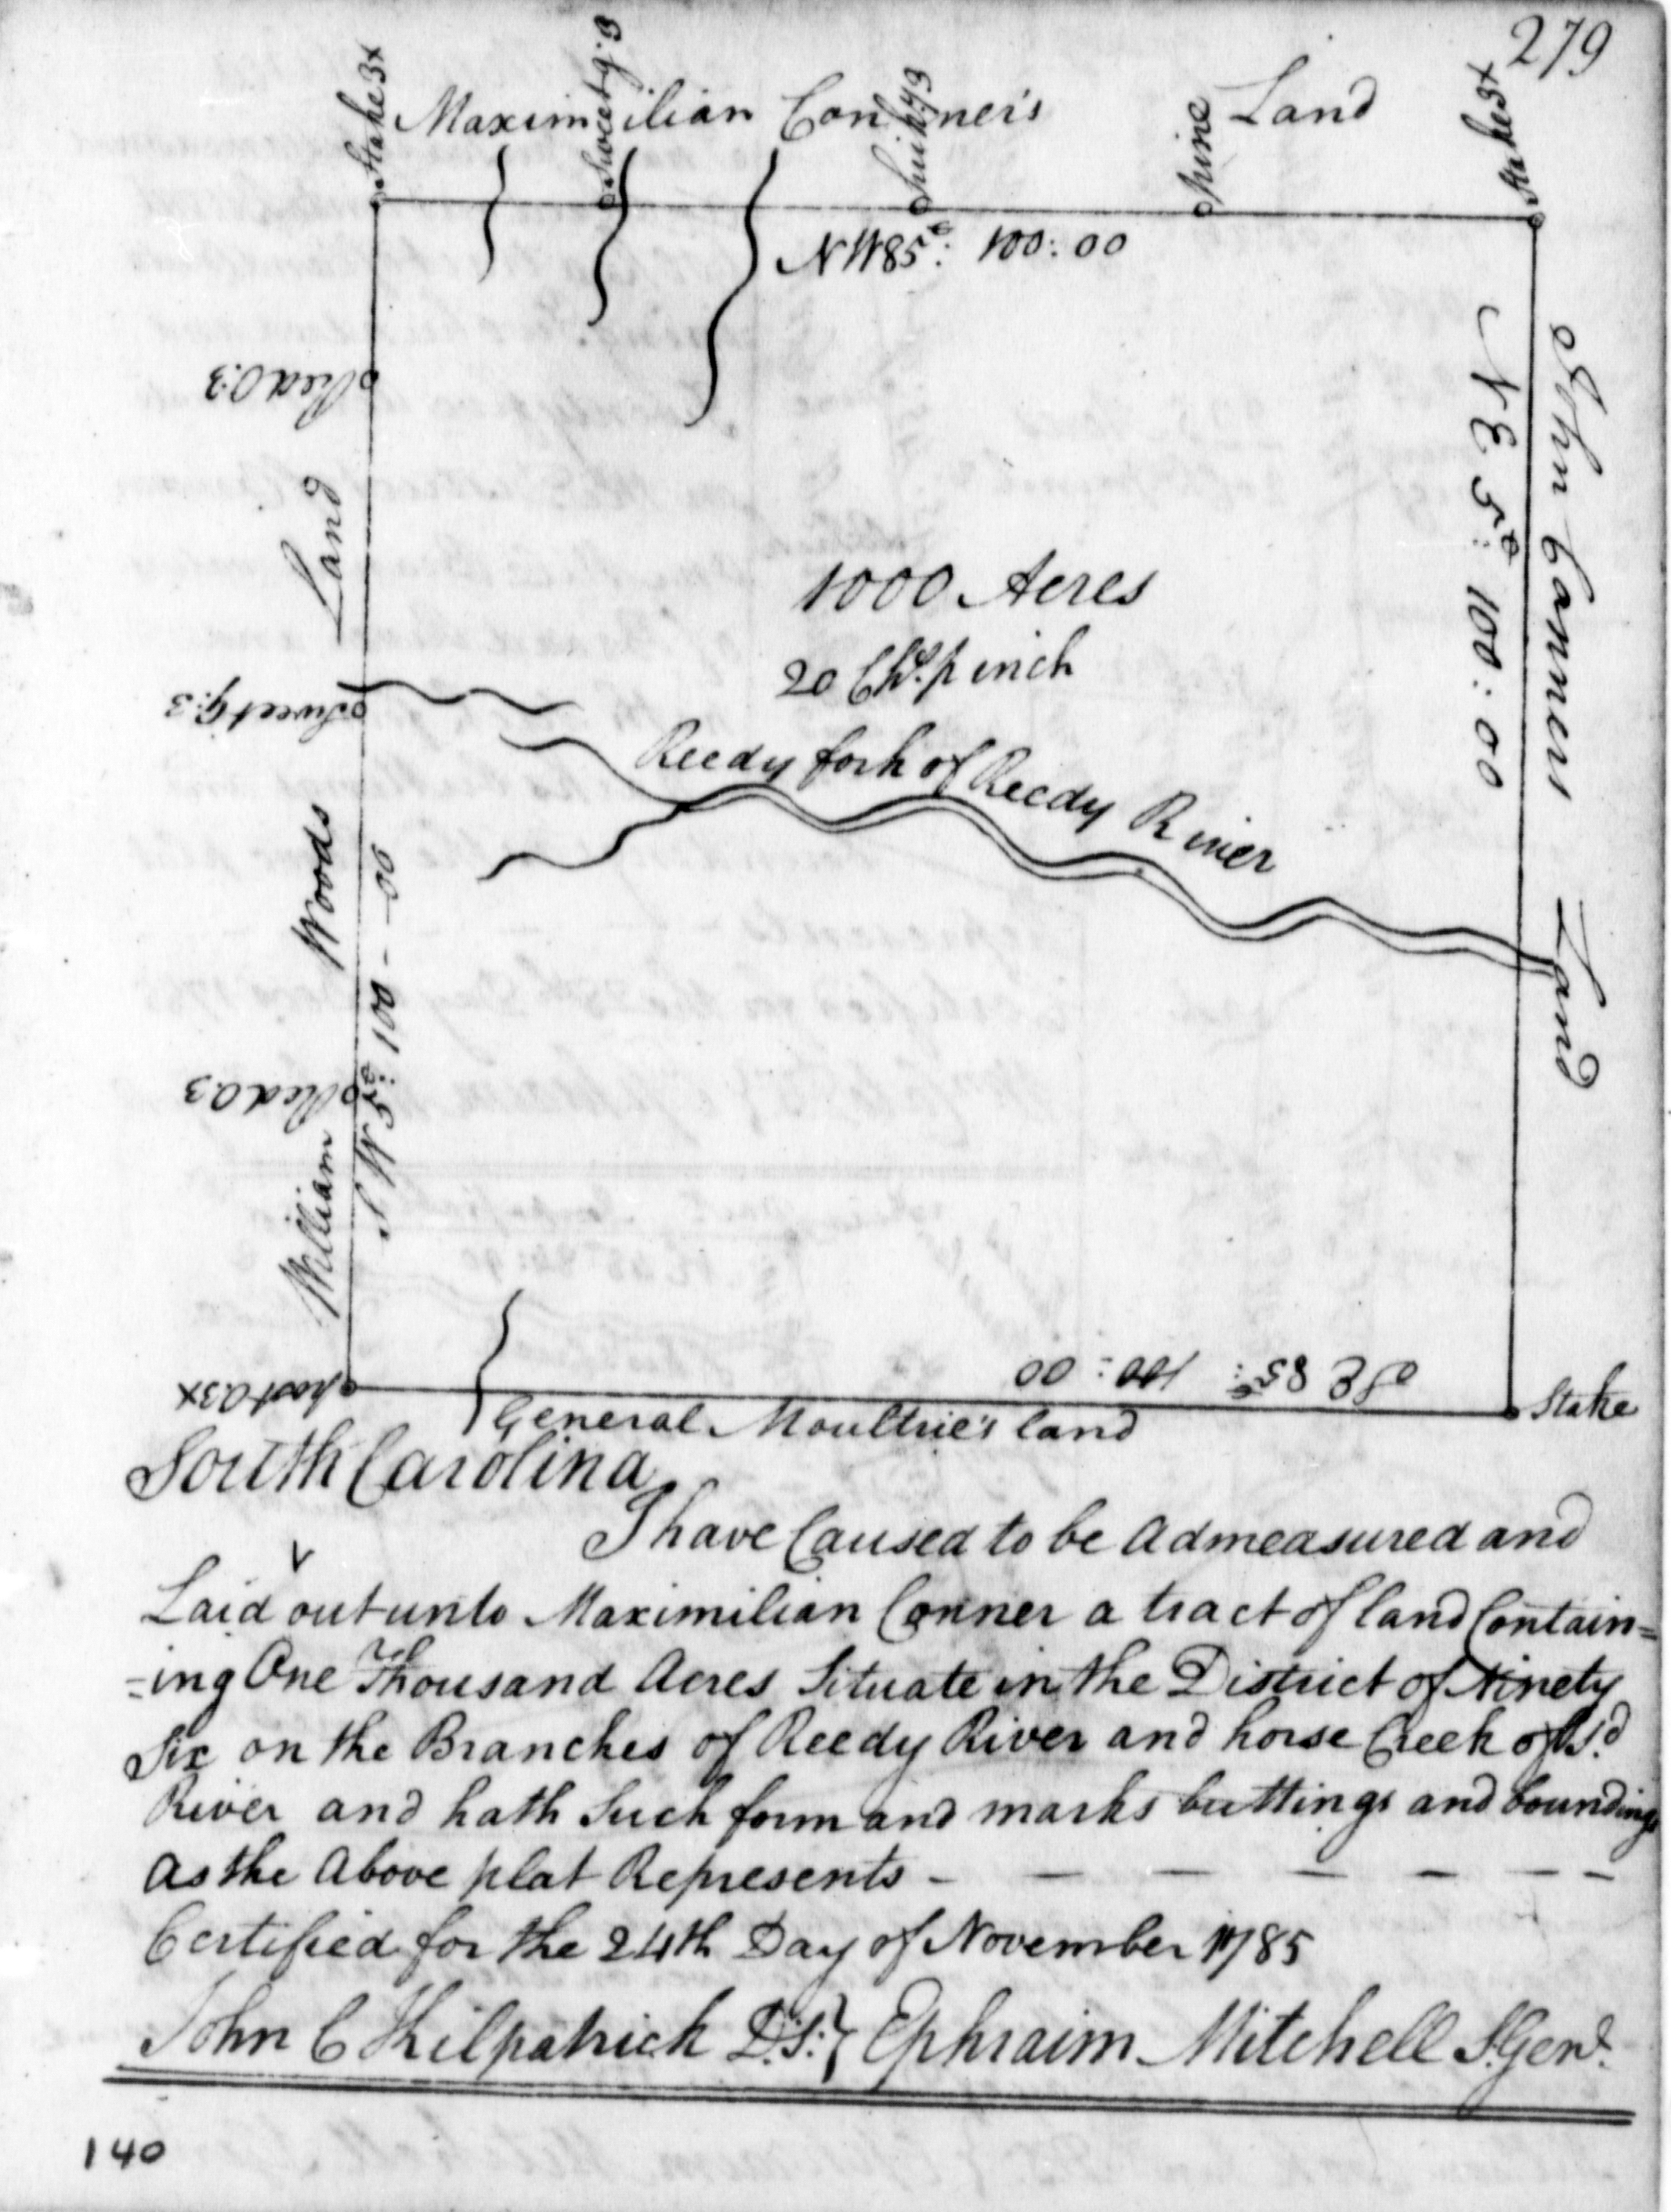 279
Stake 3x
Sweet g: 3
Hiik:y 3
pine
Stake 3x
Maximilian Conner's Land
NW 85d: 100:00
Red O:3
NE 5d: 100:00
John Conner Land
1000 Acres
20 Chs. p inch
Sweet G:3
Reedy fork of Reedy River
William Woods Land
SW 5d: 100-00
Red O:3
post O 3x
SE 85d: 100:00
Stake
General Moultrie's land
South Carolina
I have Caused to be Admeasured and
Laid out unto Maximilian Conner a tract of land Contain=
=ing One Thousand Acres Situate in the District of Ninety
Six on the Branches of Reedy River and horse Creek of Sd.
River and hath Such form and marks buttings and boundings
as the Above plat Represents - — — — — — —
Certified for the 24th Day of November 1785
John C Kilpatrick D.S.} Ephraim Mitchell S.Genl.
140